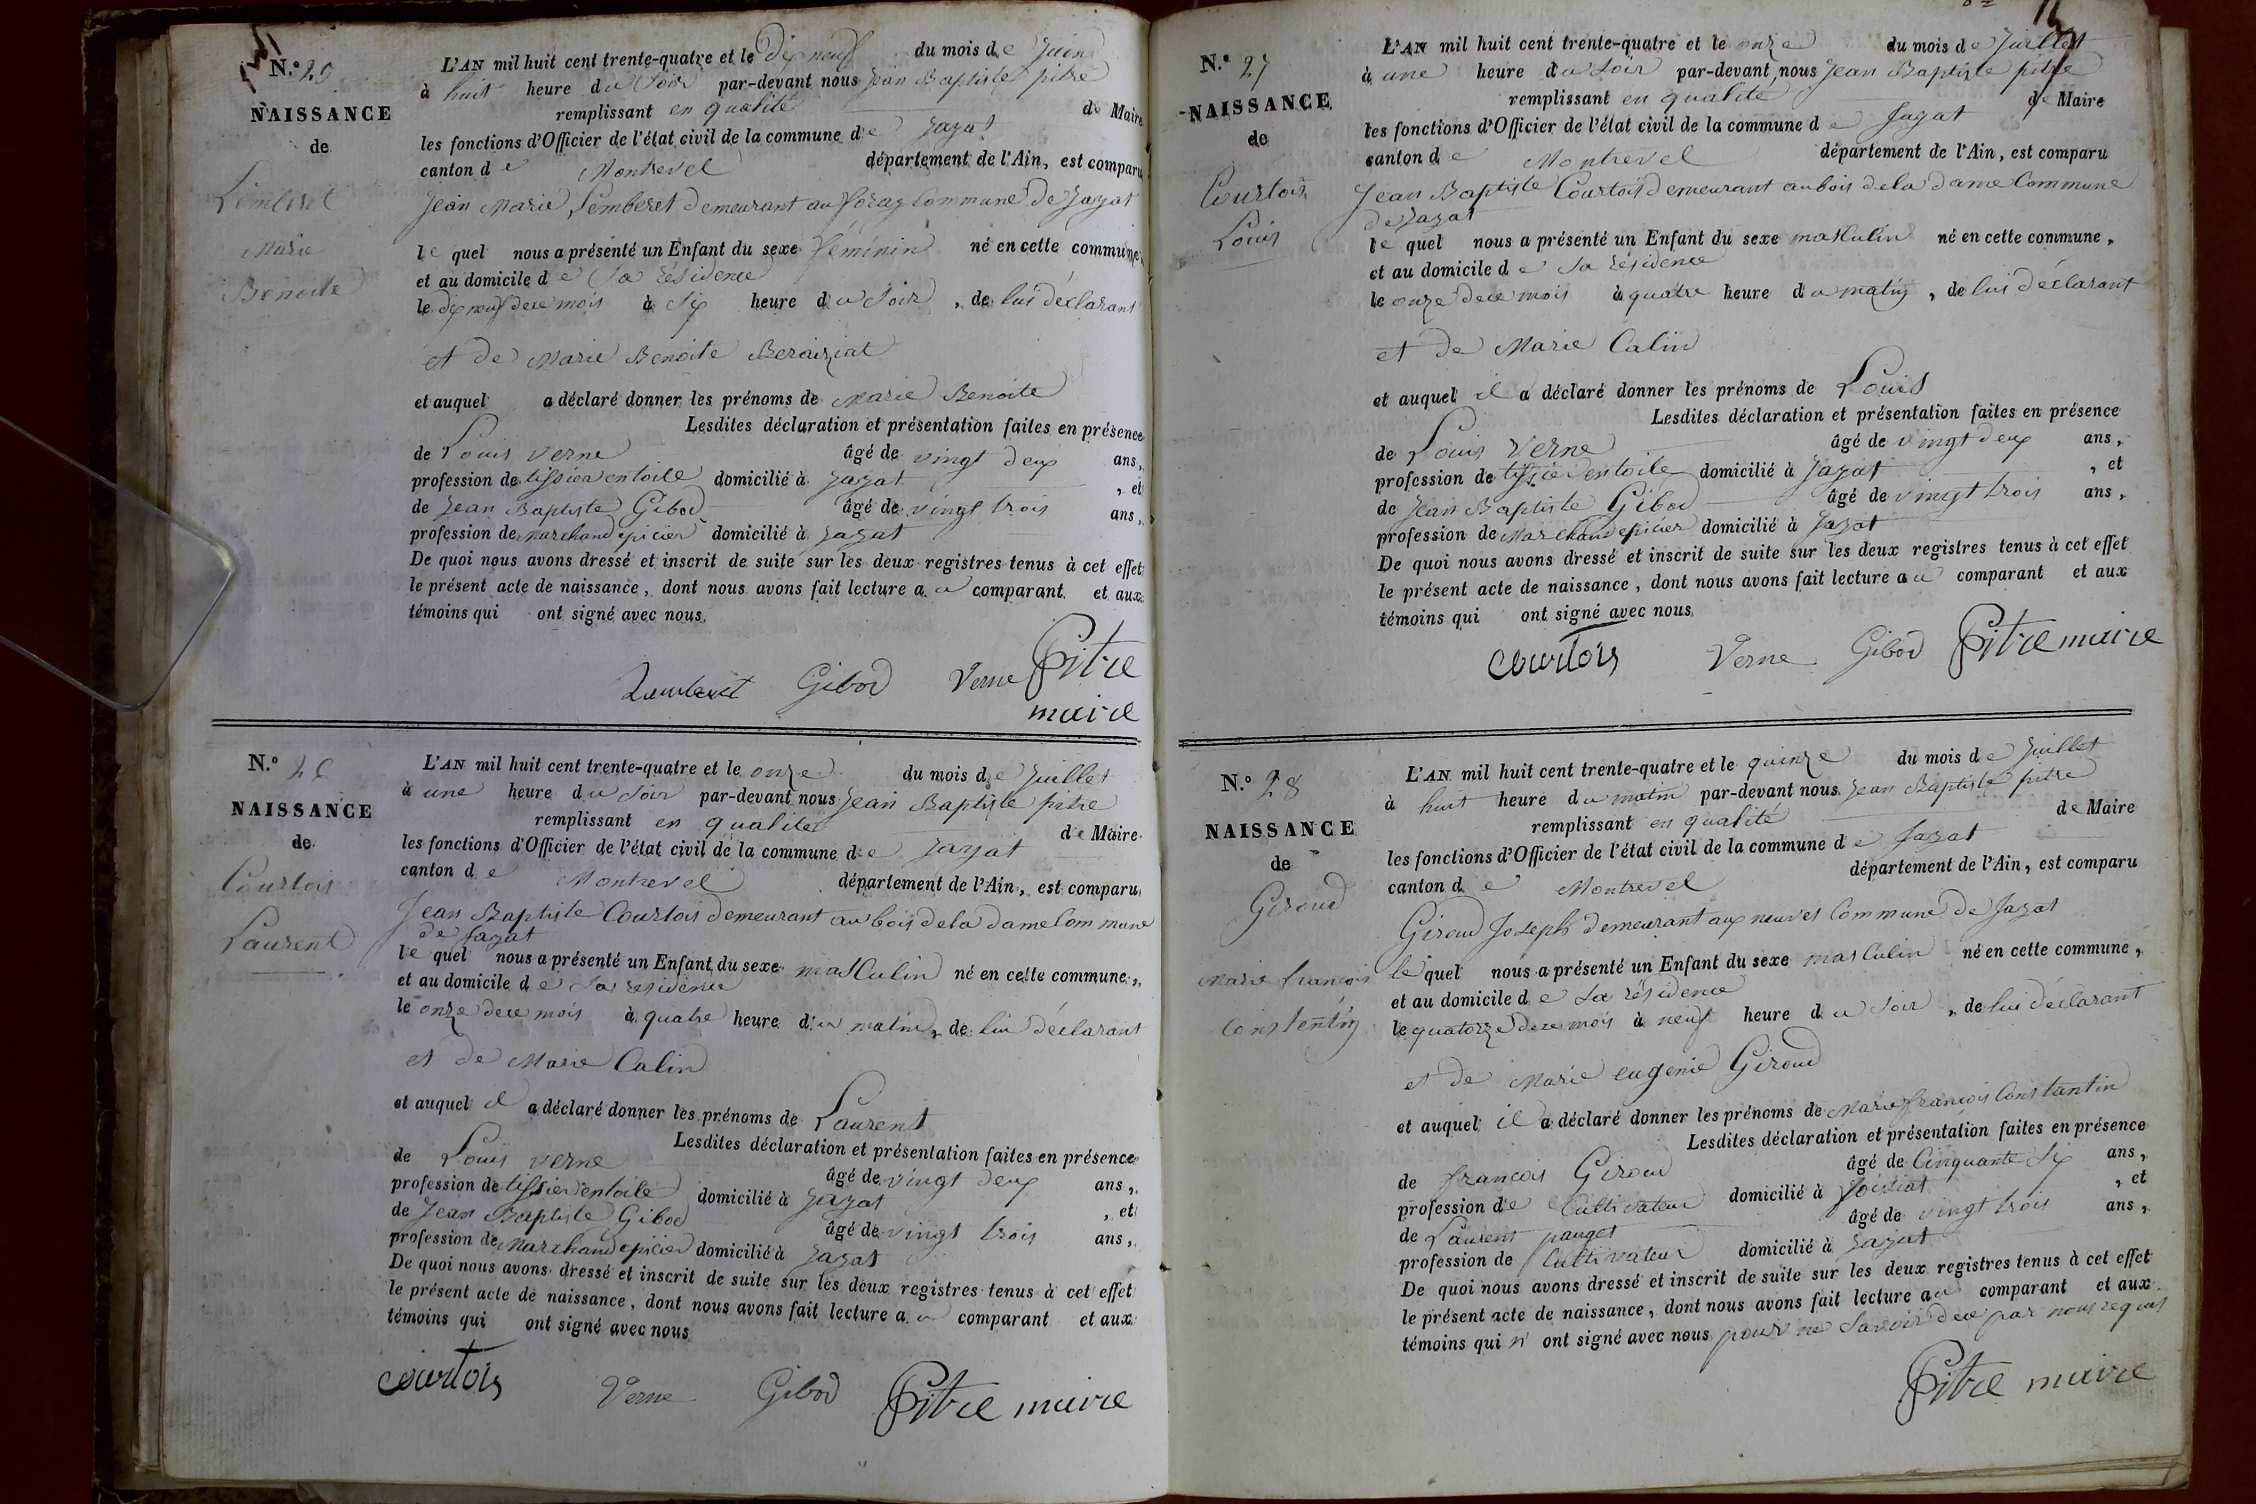 N.º 25
NAISSANCE
de
Lemberet
Marie
Benoite
L'AN mil huit cent trente-quatre et le dix neuf du mois de Juin
à huit heure du Soir par-devant nous Jean Baptiste pitre
remplissant en qualité de Maire
les fonctions d'Officier de l'état civil de la commune de Jayat
canton de Montrevel département de l'Ain, est comparu
Jean Marie Lemberet demeurant au foray Commune de Jayat
le quel nous a présenté un Enfant du sexe féminin né en cette commune,
et au domicile de Sa résidence
le dix neuf dece mois à Six heure du Soir, de lui déclarant
et de Marie Benoite Beraiziat
et auquel a déclaré donner les prénoms de Marie Benoite
Lesdites déclaration et présentation faites en présence
de Louis Verne âgé de vingt deux ans,
profession de tissier entoile domicilié à Jayat, et
de Jean Baptiste Gibod âgé de vingt trois ans,
profession de marchand epicier domicilié à Jayat
De quoi nous avons dressé et inscrit de suite sur les deux registres tenus à cet effet
le présent acte de naissance, dont nous avons fait lecture au comparant et aux
témoins qui ont signé avec nous.
Lemberet Gibod Verne Pitre
maire
N.º 26
NAISSANCE
de
Courtois
Laurent
L'AN mil huit cent trente-quatre et le onze du mois de Juillet
à une heure du Soir par-devant nous Jean Baptiste pitre
remplissant en qualité de Maire
les fonctions d'Officier de l'état civil de la commune de Jayat
canton de Montrevel département de l'Ain, est comparu
Jean Baptiste Courtois demeurant au bois dela dame Commune
de Jayat
le quel nous a présenté un Enfant du sexe masculin né en cette commune,
et au domicile de Sa residence
le onze dece mois à quatre heure du matin, de lui déclarant
et de Marie Calin
et auquel il a déclaré donner les prénoms de Laurent
Lesdites déclaration et présentation faites en présence
de Louis Verne âgé de vingt deux ans,
profession de tissier entoile domicilié à Jayat, et
de Jean Baptiste Gibod âgé de vingt trois ans,
profession de Marchand epicier domicilié à Jayat
De quoi nous avons dressé et inscrit de suite sur les deux registres tenus à cet effet
le présent acte de naissance, dont nous avons fait lecture au comparant et aux
témoins qui ont signé avec nous
Courtois Verne Gibod Pitre maire
N.º 27
NAISSANCE
de
Courtois
Louis
L'AN mil huit cent trente-quatre et le onze du mois de Juillet
à une heure du Soir par-devant nous Jean Baptiste pitre
remplissant en qualité de Maire
les fonctions d'Officier de l'état civil de la commune de Jayat
canton de Montrevel département de l'Ain, est comparu
Jean Baptiste Courtois demeurant au bois dela dame Commune
de Jayat
le quel nous a présenté un Enfant du sexe masculin né en cette commune,
et au domicile de Sa résidence
le onze dece mois à quatre heure du matin, de lui déclarant
et de Marie Calin
et auquel il a déclaré donner les prénoms de Louis
Lesdites déclaration et présentation faites en présence
de Louis Verne âgé de vingt deux ans,
profession de tissier entoile domicilié à Jayat, et
de Jean Baptiste Gibod âgé de vingt trois ans,
profession de Marchand epicier domicilié à Jayat
De quoi nous avons dressé et inscrit de suite sur les deux registres tenus à cet effet
le présent acte de naissance, dont nous avons fait lecture au comparant et aux
témoins qui ont signé avec nous.
Courtois Verne Gibod Pitre maire
N.º 28
NAISSANCE
de
Giroud
Marie francois
Constentin
L'AN mil huit cent trente-quatre et le quinze du mois de Juillet
à huit heure du matin par-devant nous Jean Baptiste pitre
remplissant en qualité de Maire
les fonctions d'Officier de l'état civil de la commune de Jayat
canton de Montrevel département de l'Ain, est comparu
Giroud Joseph demeurant aux neuves Commune de Jayat
le quel nous a présenté un Enfant du sexe masculin né en cette commune,
et au domicile de Sa résidence
le quatorze dece mois à neuf heure du Soir, de lui déclarant
et de Marie eugenie Giroud
et auquel il a déclaré donner les prénoms de Marie francois Constantin
Lesdites déclaration et présentation faites en présence
de francois Giroud âgé de Cinquante Six ans,
profession de Cultivateur domicilié à foissiat, et
de Laurent pauget âgé de vingt trois ans,
profession de Cultivateur domicilié à Jayat
De quoi nous avons dressé et inscrit de suite sur les deux registres tenus à cet effet
le présent acte de naissance, dont nous avons fait lecture au comparant et aux
témoins qui n' ont signé avec nous pour ne Savoir dece par nous requis
Pitre maire